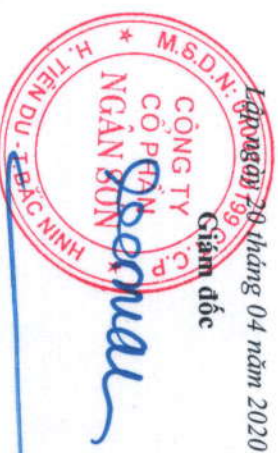 Lập ngày 20 tháng 04 năm 2020
Giám đốc
M.S.D.N:
C.P
CÔNG TY
CỔ PHẦN
NGÂN SƠN
H. TIÊN DU - T. BẮC NINH